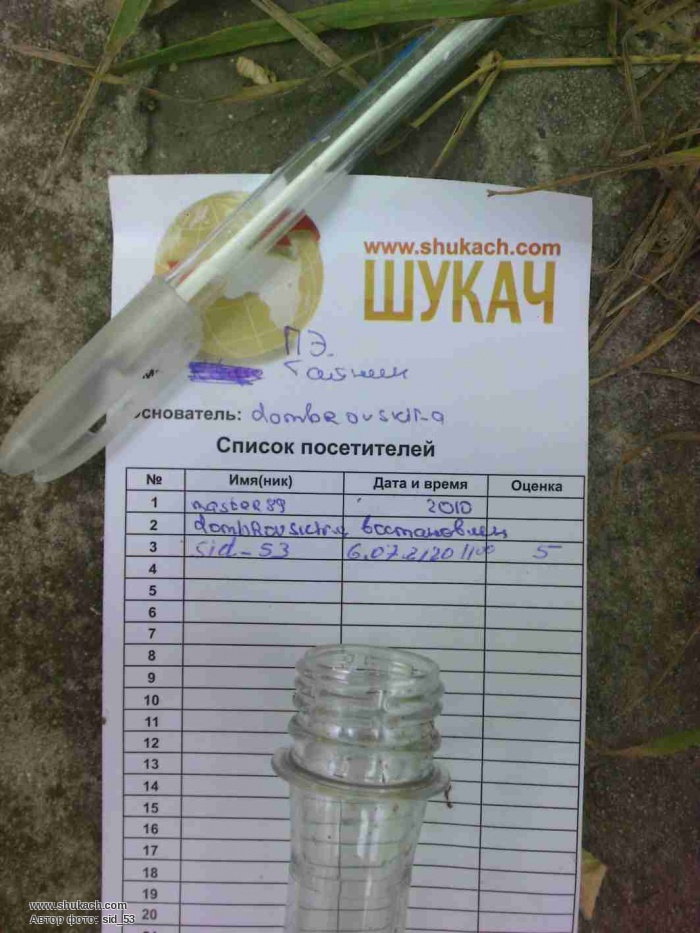 www.shukach.com
ШУКАЧ
ПЭ.
Тайник
основатель: dombrovskii-a
Список посетителей
№ Имя(ник) Дата и время Оценка
1 master89 2010
2 востановлен
3 sid-53 11 00 5
4
5
6
7
8
9
10
11
12
13
14
15
16
17
18
19
20
www.shukach.com
Автор фото: sid_53